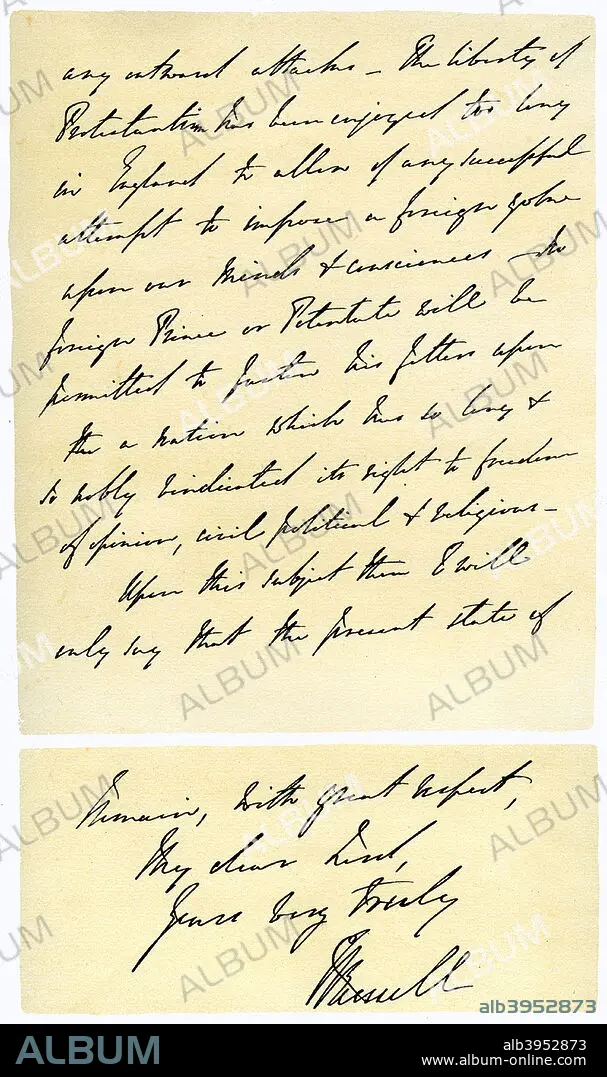 any outward attacks – The liberty of
Protestantism has been enjoyed too long
in England to allow of any successful
attempt to impose a foreign yoke
upon our minds & consciences No
foreign Prince or Potentate will be
permitted to fasten his fetters upon
the a nation which has so long &
so nobly vindicated its right to freedom
of opinion, civil political & religious –
Upon this subject then I will
only say that the present state of
remain, with great respect,
My dear Lord,
Yours very truly
J Russell
alb3952873
ALBUM
alb3952873
www.album-online.com